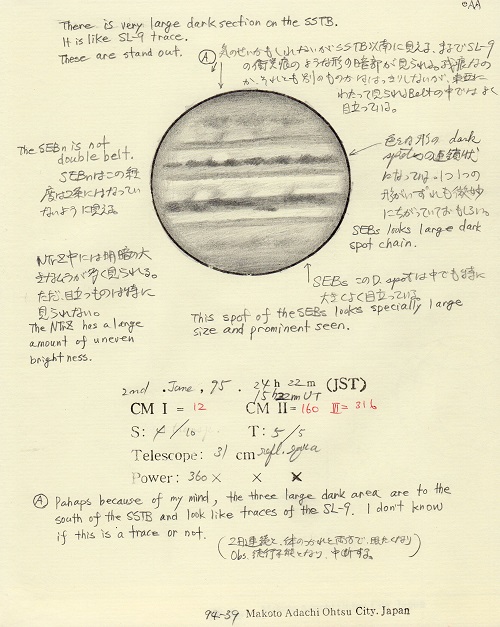 ©AA
There is very large dark section on the SSTB.
It is like SL-9 trace.
These are stand out.
Ⓐ 気のせいかもしれないがSSTB以南に見える、まるでSL-9
の衝突痕のような形の暗部が見られる。
わたって見られるBeltの中ではよく
目立っている。
The SEBn is not
double belt.
SEBnはこの程
度は2条にはなってい
ないように見える。
色々な形の dark
spotの連鎖状
になっている。1つ1つの
形がいずれも微妙
にちがっていておもしろい。
SEBs looks large dark
spot chain.
NTrZ中には明暗の大
きなムラが多く見られる。
ただ、目立つものは特に
見られない。
The NTrZ has a large
amount of uneven
brightness.
SEBs このD.spotは中でも特に
大きくよく目立っている。
This spot of the SEBs looks specially large
size and prominent seen.
2nd . June , 95 . 24h 22m (JST)
15h 22m UT
CM I = 12 CM II = 160 III = 316
S: 4/10 T: 5/5
Telescope: 31 cm refl.
Power: 360 × × ×
Ⓐ Pahaps because of my mind, the three large dark area are to the
south of the SSTB and look like traces of the SL-9. I don't know
if this is a trace or not.
(2日連続で、体のつかれと両方で、眠たくなり
Obs. 続行不能となり、中断する。)
94-39 Makoto Adachi Ohtsu City. Japan